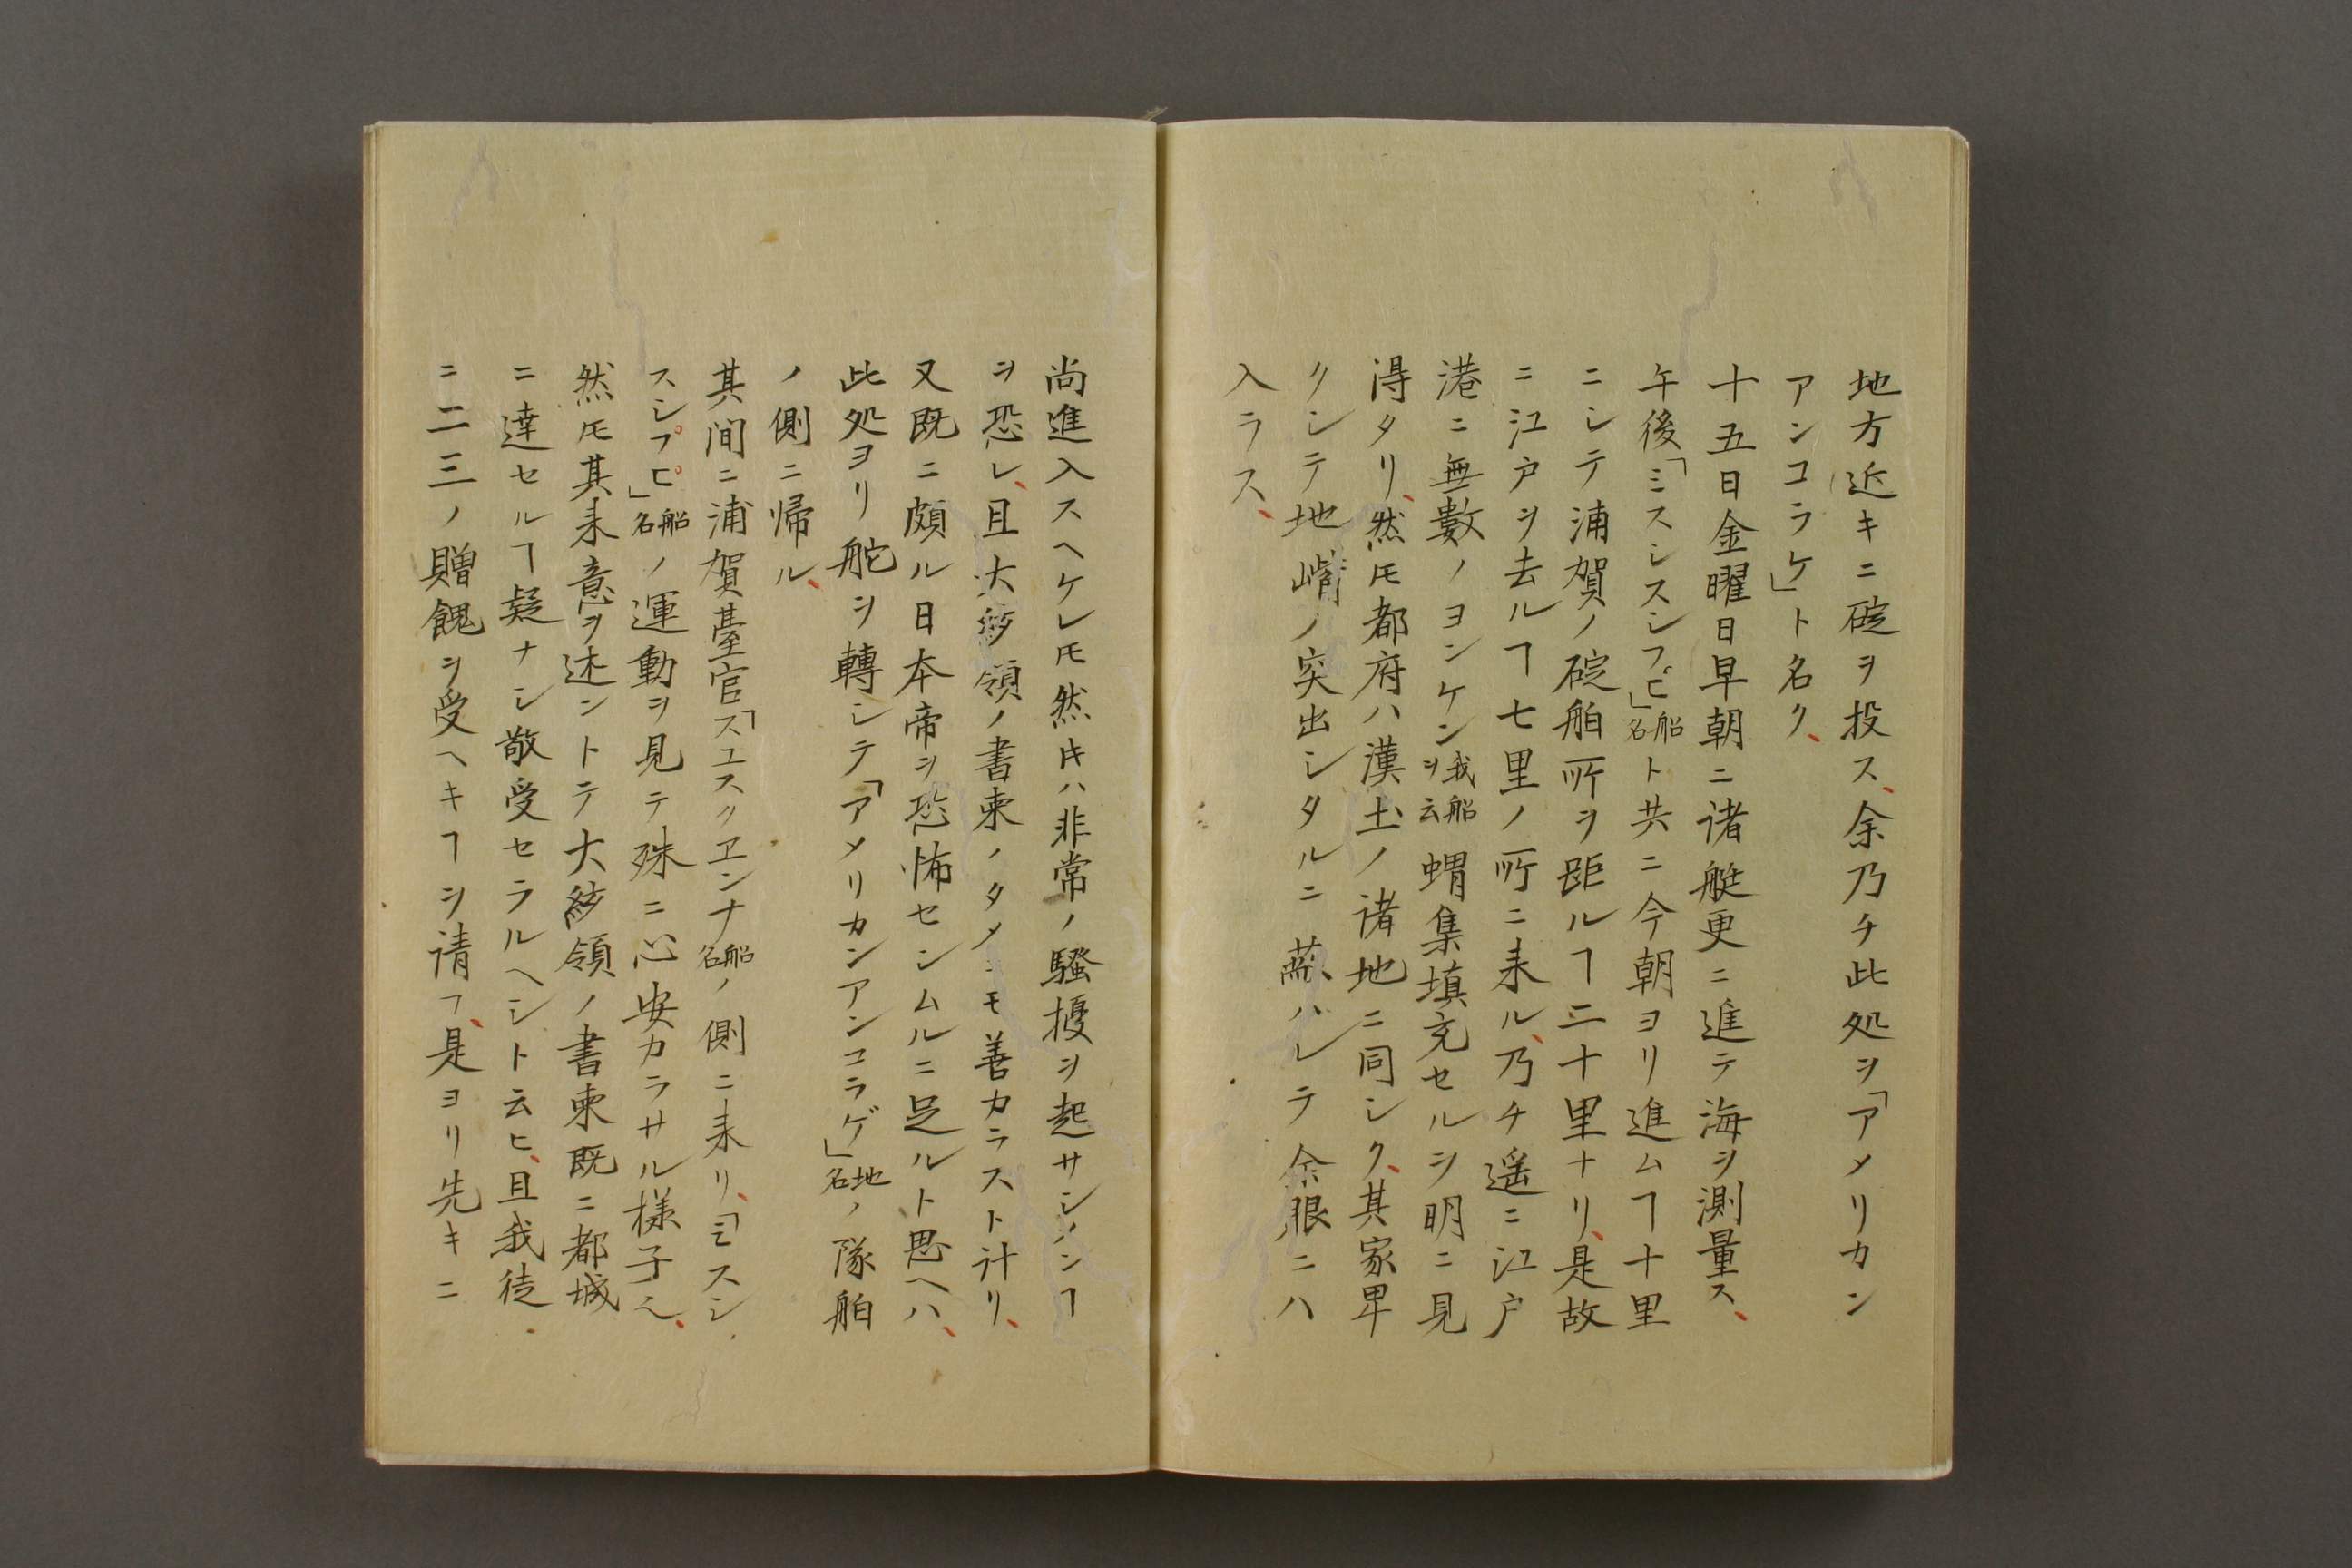 地方近キニ碇ヲ投ス、余乃チ此処ヲ「アメリカン
アンコラケ」ト名ク、
十五日金曜日早朝ニ諸艇更ニ進テ海ヲ測量ス、
午後「ミスシスシフピ」船名ト共ニ今朝ヨリ進ムヿ十里
ニシテ浦賀ノ碇舶所ヲ距ルヿ二十里ナリ、是故
ニ江戸ヲ去ルヿ七里ノ所ニ来ル、乃チ遥ニ江戸
港ニ無數ノヨンケン我船ヲ云蝟集填充セルヲ明ニ見
得タリ、然𪜈都府ハ漢土ノ諸地ニ同シク、其家卑
クシテ地嘴ノ突出シタルニ蔽ハレテ余眼ニハ
入ラス、
尚進入スヘケレ𪜈然キハ非常ノ騒擾ヲ起サシノンヿ
ヲ恐レ、且大統領ノ書柬ノタメニモ善カラスト計リ、
又既ニ頗ル日本帝ヲ恐怖セシムルニ足ルト思ヘハ、
此処ヨリ舵ヲ轉シテ「アメリカンアンコラゲ」地名ノ隊舶
ノ側ニ帰ル、
其間ニ浦賀臺官「スユスクエンナ船名ノ側ニ来リ、「ミスシ
スシプピ」船名ノ運動ヲ見テ殊ニ心安カラサル様子ん、
然𪜈其来意ヲ述ントテ大統領ノ書柬既ニ都城
ニ達セルヿ疑ナシ敬受セラルヘシト云ヒ、且我徒
ニ二三ノ贈餽ヲ受ヘキヿヲ請フ、是ヨリ先キニ